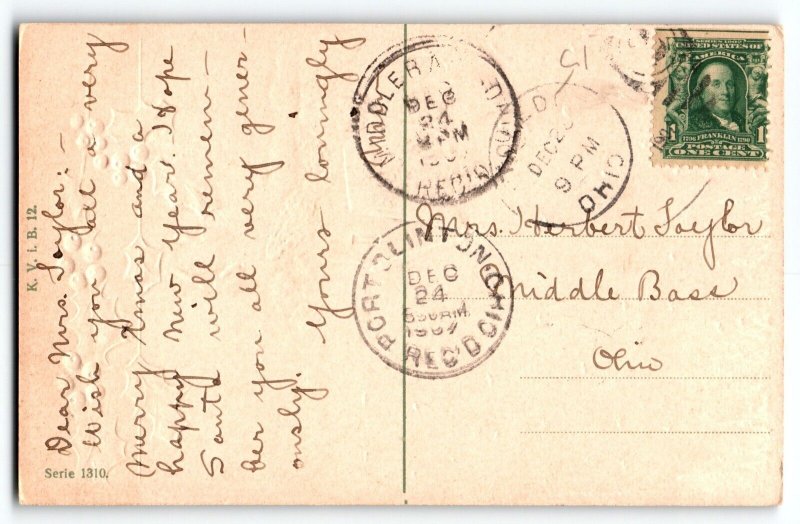 Dear Mrs. Taylor: -
Wish you all a very
Merry Xmas and a
happy New Year. Hope
Santa will remem-
ber you all very gener-
ously. Yours lovingly
K. V. i. B. 12.
Serie 1310.
DEC
24
PM
REC'D
DEC 2
9 PM
OHIO
PORT CLINTON, OHIO
DEC
24
1907
REC'D
SERIES 1902
UNITED STATES OF
AMERICA
1 1
1706 FRANKLIN 1790
POSTAGE
ONE CENT
Mrs. Herbert Taylor
Middle Bass
Ohio